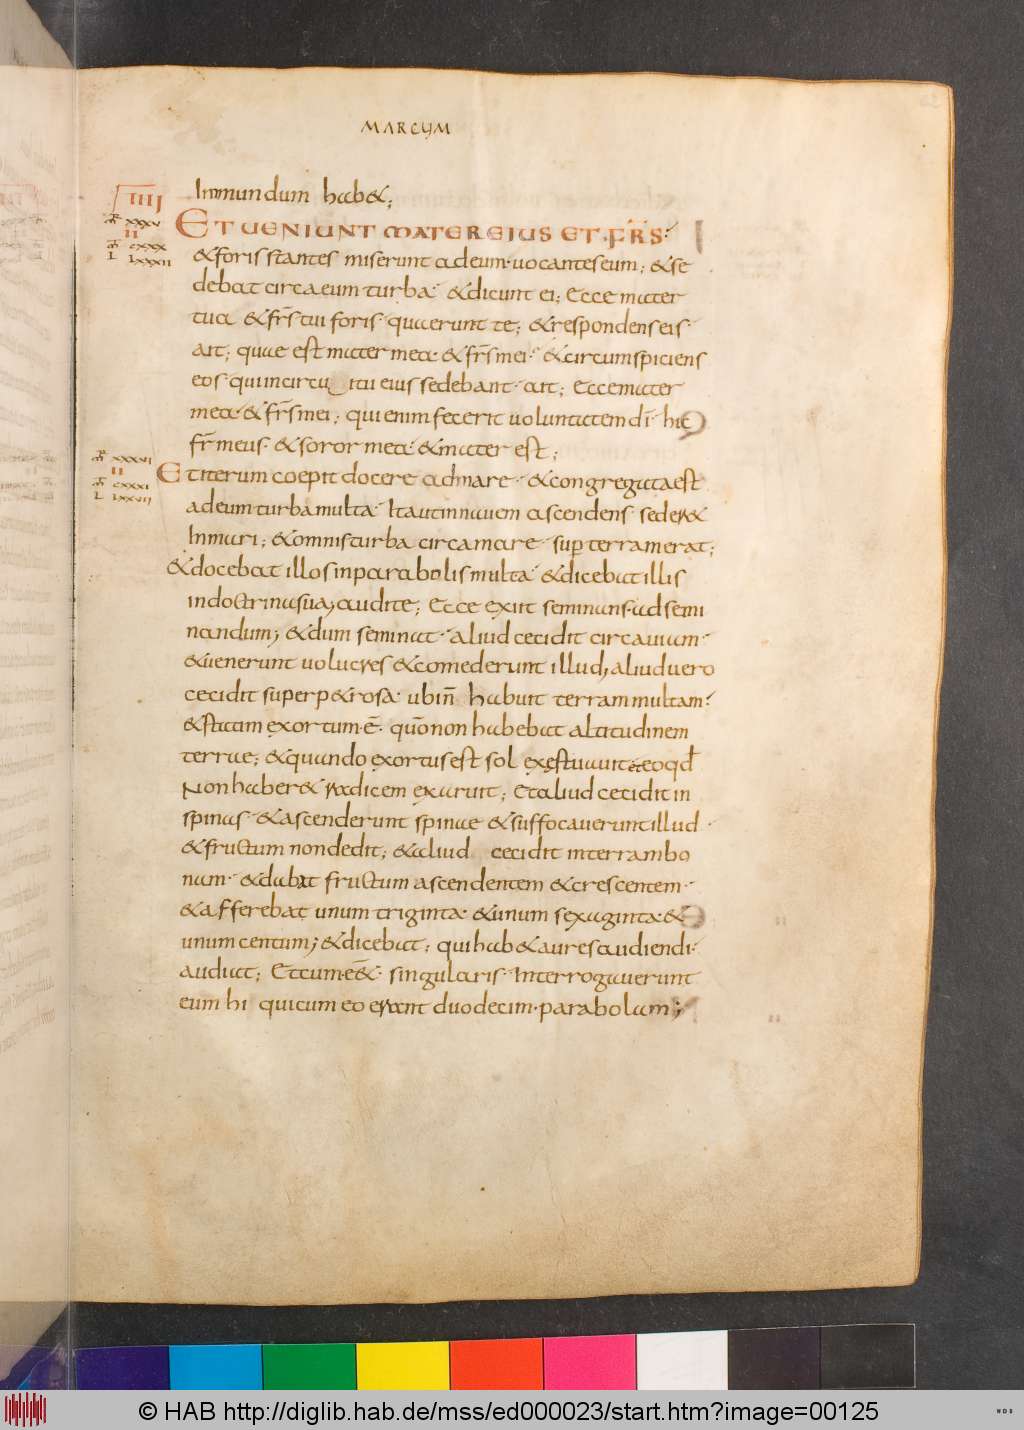 MARCUM
IIII
Inmundum hab&;
MR XXXV
II
MT CXXX
L LXXXII
ET UENIUNT MATER EIUS ET FR̄S·
&foris stantes miserunt adeum· uocantes eum; &se
debat circaeum turba· &dicunt ei; Ecce mater
tua &fr̄s tui foris· quaerunt te; &respondens eis·
ait; quae est mater mea· &fr̄s mei· &circumspiciens
eos· qui incircu itu eius sedebant· ait; Ecce mater
mea· &fr̄s mei; qui enim fecerit uoluntatem dī· hic
fr̄ meus· &soror mea· &mater est;
MR XXXVI
II
MT CXXXI
L LXXVII
Et iterum coepit docere admare· &congregata est
adeum turba multa· Ita ut in nauem ascendens·seder&
In mari; &omnis turba circa mare· sup̄ terram erat;
&docebat illos in parabolis multa· &dicebat illis
in doctrina sua; audite; Ecce exiit seminans· ad semi
nandum; &dum seminat· aliud cecidit circa uiam·
&uenerunt uolucres &comederunt illud; aliud uero
cecidit super p&rosa· ubi n̄ habuit terram multam·
&statim exortum· ē· quō non habebat altitudinem
terrae; &quando exortus est sol exęstuauit &eo qđ
Non haber& radicem exaruit; Et aliud cecidit in
spinas· &ascenderunt spinae &suffocauerunt illud·
&fructum non dedit; &aliud cecidit in terram bo
nam· &dabat fructum ascendentem &crescentem·
&afferebat unum triginta· &unum sexaginta· &
unum centum; &dicebat; qui hab& aures audiendi·
audiat; Et cum· eē&· singularis· Interrogauerunt
eum hi qui cum eo erant duodecim· parabolam;
© HAB http://diglib.hab.de/mss/ed000023/start.htm?image=00125
WDB